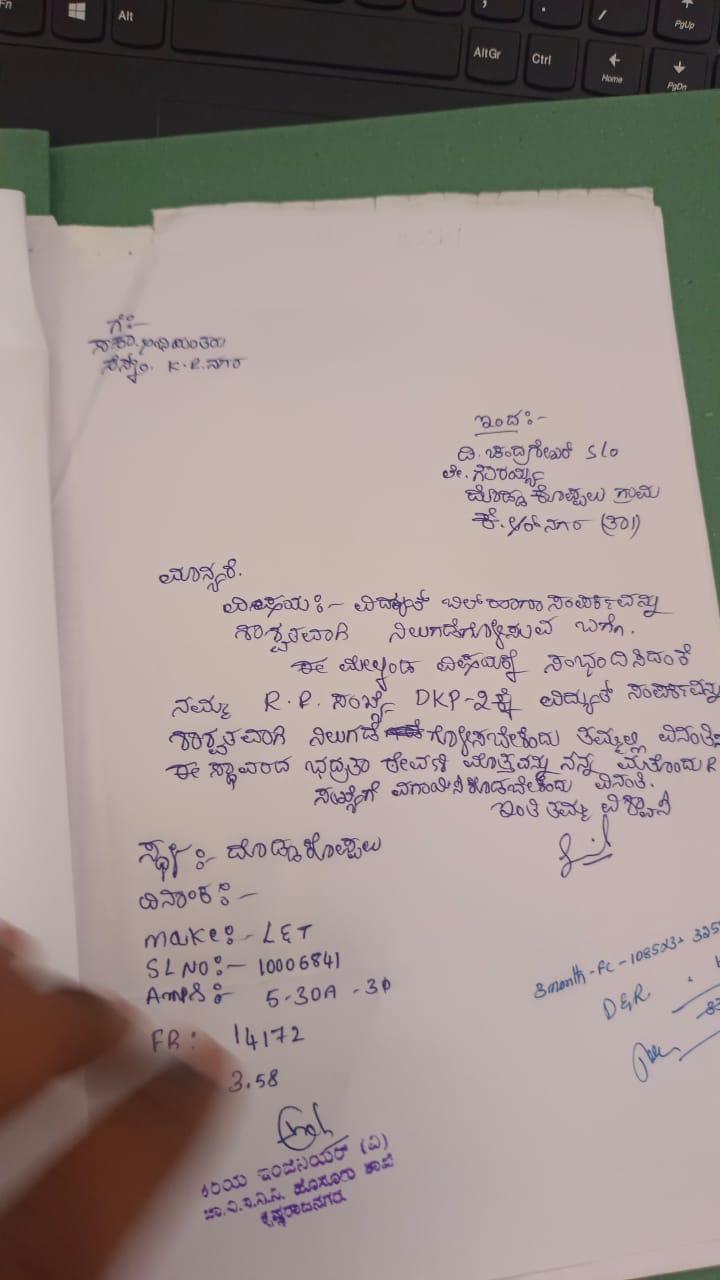 Fn
Alt
AltGr
Ctrl
Home
PgUp
PgDn
ಗೆ:-
ಸಹಾ.
K.R.ನಗರ
ಇಂದ:-
ಡಿ. ಚಂದ್ರಶೇಖರ್ S/o
ಲೇ.
ದೊಡ್ಡಕೊಪ್ಪಲು ಗ್ರಾಮ
ಕೆ. ಆರ್ ನಗರ (ತಾ)
ಮಾನ್ಯರೆ.
ವಿಷಯ:- ವಿದ್ಯುತ್ ಬಿಲ್ ಹಾಗೂ ಸಂಪರ್ಕವನ್ನು
ಶಾಶ್ವತವಾಗಿ ನಿಲುಗಡೆಗೊಳಿಸುವ ಬಗ್ಗೆ.
ಈ ಮೇಲ್ಕಂಡ ವಿಷಯಕ್ಕೆ ಸಂಭಂದಿಸಿದಂತೆ
ನಮ್ಮ R.R. ಸಂಖ್ಯೆ DKP-2ಕ್ಕೆ ವಿದ್ಯುತ್ ಸಂಪರ್ಕವನ್ನು
ಶಾಶ್ವತವಾಗಿ ನಿಲುಗಡೆ ಗೊಳಿಸಬೇಕೆಂದು ತಮ್ಮಲ್ಲಿ
ಈ ಸ್ಥಾವರದ ಭದ್ರತಾ ಠೇವಣಿ ಮೊತ್ತವನ್ನು ನನ್ನ ಮತ್ತೊಂದು R
ಸಂಖ್ಯೆಗೆ ವರ್ಗಾಯಿಸಿಕೊಡಬೇಕೆಂದು ವಿನಂತಿ.
ಇಂತಿ ತಮ್ಮ ವಿಶ್ವಾಸಿ
ಸ್ಥಳ:- ದೊಡ್ಡಕೊಪ್ಪಲು
ದಿನಾಂಕ:-
make:- L&T
SLNO:- 10006841
AMPS:- 5-30A
FR: 14172
3.58
3month-FC-1085x3=
D&R
ಕಿರಿಯ ಇಂಜಿನಿಯರ್ (ವಿ)
ಚಾ.ವಿ.ಸ.ನಿ.ನಿ. ಹೊಸೂರು ಶಾಖೆ
ಕೃಷ್ಣರಾಜನಗರ